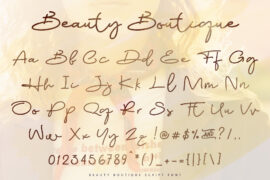 Beauty Boutique
Aa Bb Cc Dd Ee Ff Gg
Hh Ii Jj Kk Ll Mm Nn
Oo Pp Qq Rr Ss Tt Uu Vv
Ww Xx Yy Zz !@#$%&?/..
0123456789^*()_+-={}[]\
BEAUTY BOUTIQUE SCRIPT FONT